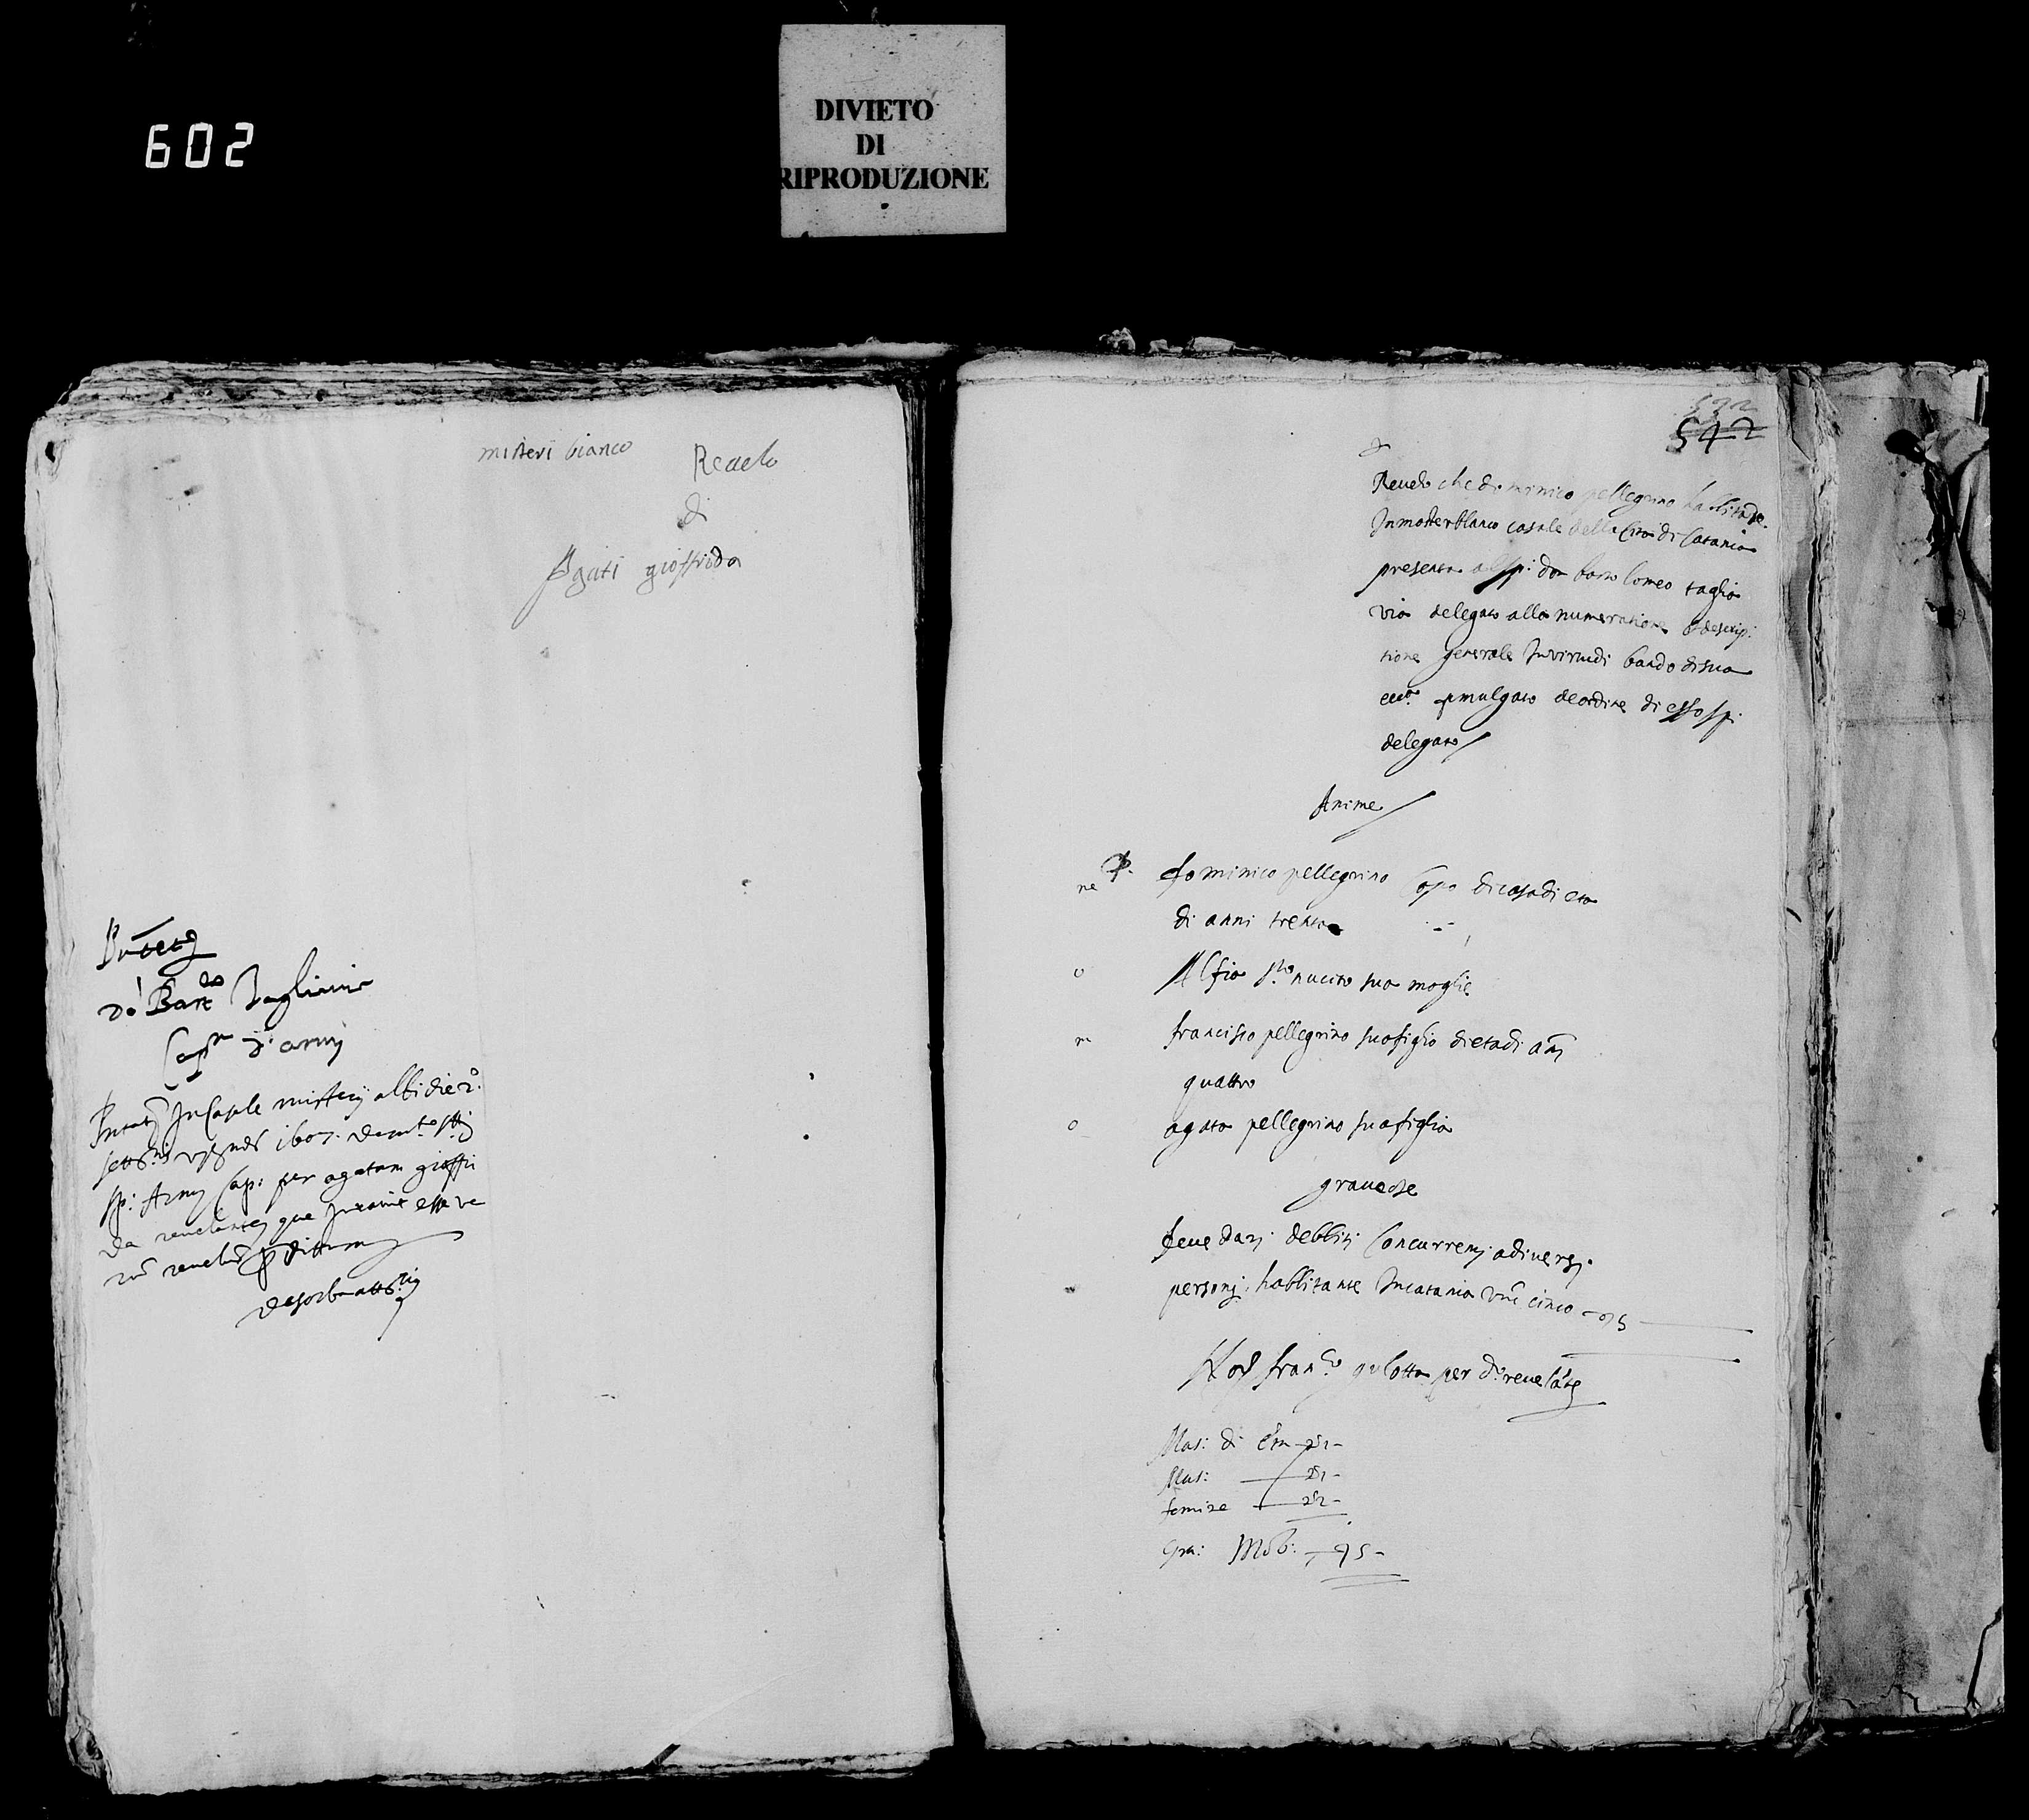 602
DIVIETO
DI
RIPRODUZIONE
misteri bianco Revelo
di
Agati gioffrida
Bar.do Tagliavia
Cap.n d'armi
In Casale misterij albi die 2.
sp: Armj Cap: per agatam gioffri
da revelantem que Juravit esse ve
532
542
Revelo che dominico pellegrino habbitate
In mosterblanco casale della Cita di Catania
presenta al sp: don barto lomeo taglia
via delegato alla numeratione et descrip:
tione generale In virtudi bando di sua
ecc.a pmulgato de ordine di esso sp:
delegato
Anime
dominico pellegrino Capo di casa di eta
di anni trenta
Alfia nucito sua moglie
francisco pellegrino suo figlio di eta di anj
quattro
agata pellegrino sua figlia
gravecze
deve darj debbitj Concurrentj a diversj
personj habbitante In catania unc cinco 5
fran.co gulotta per d.o revelante
Mas: di
Mas:
femine
Gra: Mob: 5